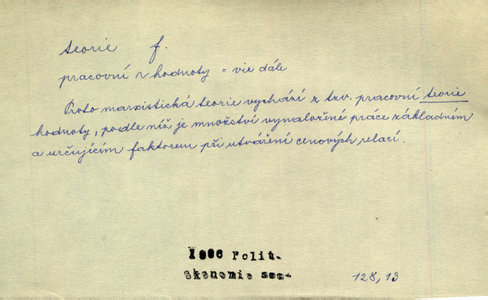 teorie f.
pracovní hodnoty = viz dále
Proto marxistická teorie vychází z tzv. pracovní teorie
hodnoty, podle níž je množství vynaložené práce základním
a určujícím faktorem při utváření cenových relací.
Polit.
ekonomie
128, 13